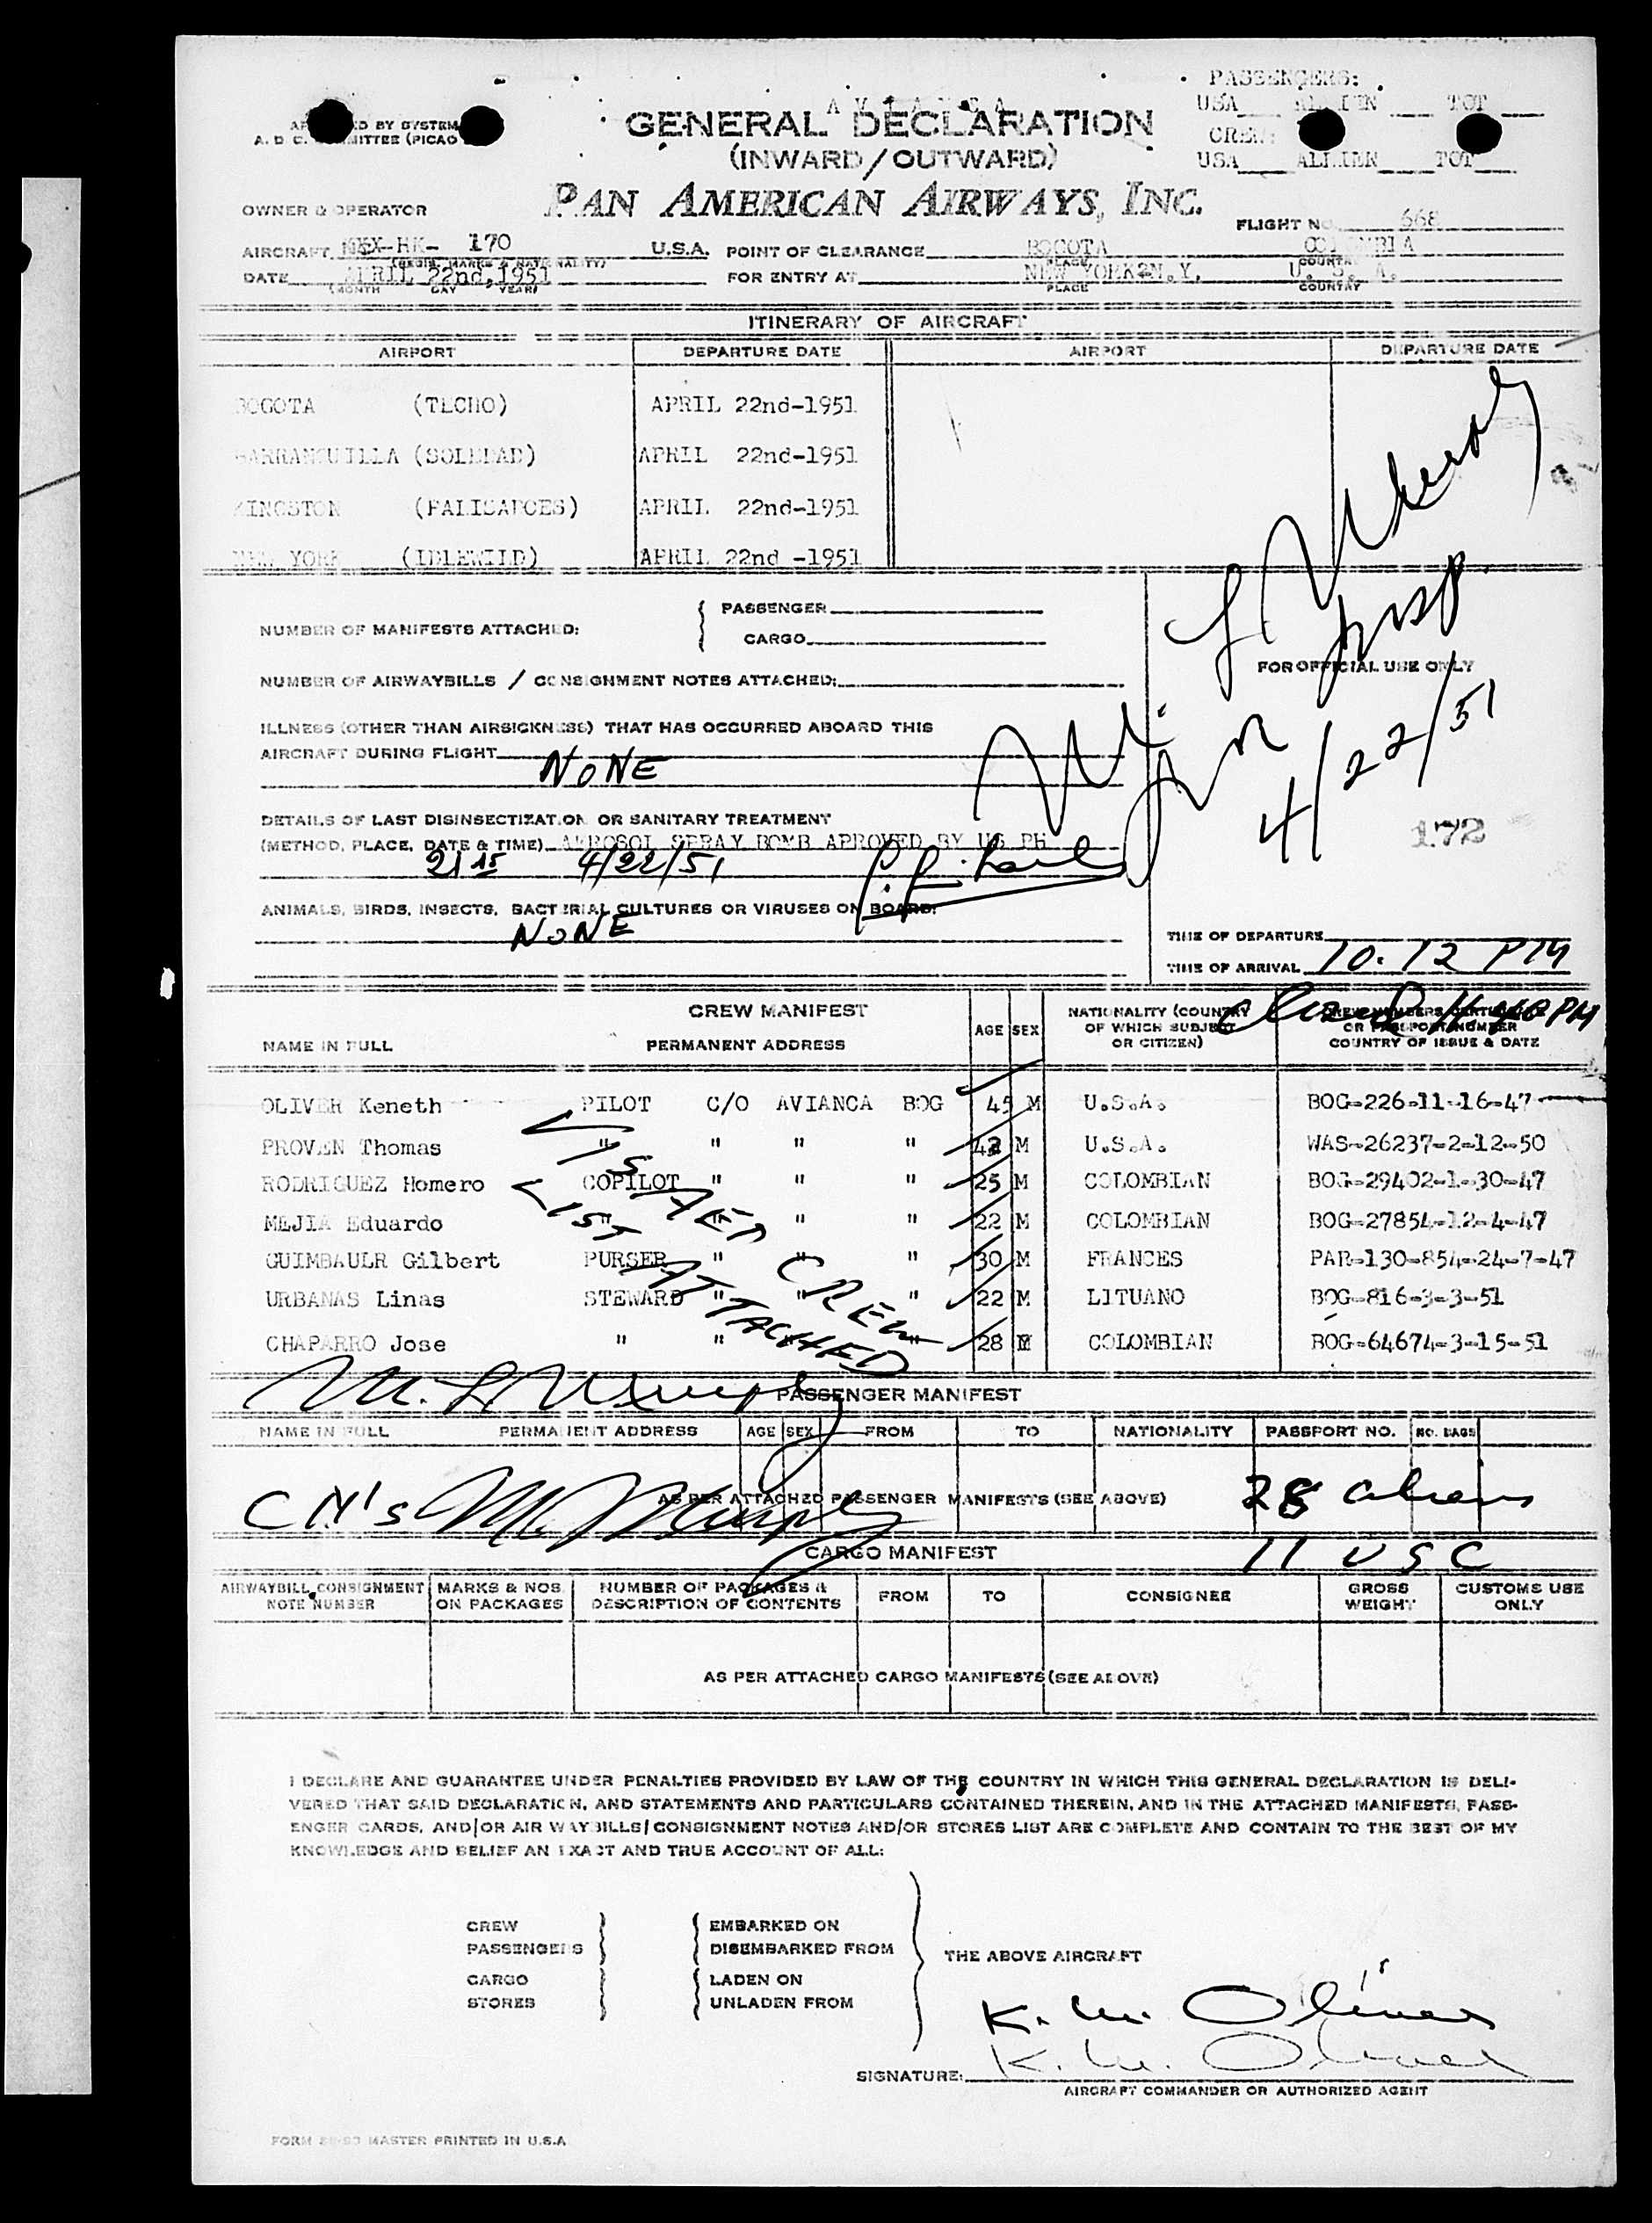 PASSENGERS:
USA ALLIEN TOT
AVIANCA
GENERAL DECLARATION
(INWARD/OUTWARD)
CREW:
USA ALLIEN TOT
BY SYSTEM
A. D. C. (PICAO
PAN AMERICAN AIRWAYS, INC.
OWNER & OPERATOR
FLIGHT NO. 668
AIRCRAFT HK- 170 U.S.A. POINT OF CLEARANCE BOGOTA COLOMBIA
(REGIS. MARKS & NATIONALITY) PLACE COUNTRY
DATE APRIL 22nd,1951 FOR ENTRY AT NEW YORK N.Y. U. S. A.
(MONTH DAY YEAR) PLACE COUNTRY
ITINERARY OF AIRCRAFT
AIRPORT DEPARTURE DATE AIRPORT DEPARTURE DATE
BOGOTA (TECHO) APRIL 22nd-1951
BARRANQUILLA (SOLEDAD) APRIL 22nd-1951
KINGSTON (PALISADOES) APRIL 22nd-1951
NEW YORK (IDLEWILD) APRIL 22nd -1951
NUMBER OF MANIFESTS ATTACHED:
PASSENGER
CARGO
Insp.
FOR OFFICIAL USE ONLY
NUMBER OF AIRWAYBILLS / CONSIGNMENT NOTES ATTACHED:
ILLNESS (OTHER THAN AIRSICKNESS) THAT HAS OCCURRED ABOARD THIS
AIRCRAFT DURING FLIGHT
NONE
4/22/51
172
DETAILS OF LAST DISINSECTIZATION OR SANITARY TREATMENT
(METHOD, PLACE, DATE & TIME) AEROSOL SPRAY BOMB APROVED BY US PH
2115 4/22/51
ANIMALS, BIRDS, INSECTS, BACTERIAL CULTURES OR VIRUSES ON BOARD:
NONE
TIME OF DEPARTURE
TIME OF ARRIVAL 10.12 PM
CREW MANIFEST
NAME IN FULL PERMANENT ADDRESS AGE SEX NATIONALITY (COUNTRY OF WHICH SUBJECT OR CITIZEN) CREW MEMBERS CERTIFICATE OR PASSPORT NUMBER COUNTRY OF ISSUE & DATE
OLIVER Keneth PILOT C/O AVIANCA BOG 45 M U.S.A. BOG-226-11-16-47
PROVEN Thomas " " " " 42 M U.S.A. WAS-26237-2-12-50
RODRIGUEZ Homero COPILOT " " " 25 M COLOMBIAN BOG-29402-1-30-47
MEJIA Eduardo " " " " 22 M COLOMBIAN BOG-27854-12-4-47
GUIMBAULR Gilbert PURSER " " " 30 M FRANCES PAR-130-854-24-7-47
URBANAS Linas STEWARD " " " 22 M LITUANO BOG-816-3-3-51
CHAPARRO Jose " " " " 28 M COLOMBIAN BOG-64674-3-15-51
VISAED CREW
LIST ATTACHED
PASSENGER MANIFEST
NAME IN FULL PERMANENT ADDRESS AGE SEX FROM TO NATIONALITY PASSPORT NO. NO. BAGS
AS PER ATTACHED PASSENGER MANIFESTS (SEE ABOVE)
28 aliens
11 USC
CARGO MANIFEST
AIRWAYBILL, CONSIGNMENT NOTE NUMBER MARKS & NOS. ON PACKAGES NUMBER OF PACKAGES & DESCRIPTION OF CONTENTS FROM TO CONSIGNEE GROSS WEIGHT CUSTOMS USE ONLY
AS PER ATTACHED CARGO MANIFESTS (SEE ABOVE)
I DECLARE AND GUARANTEE UNDER PENALTIES PROVIDED BY LAW OF THE COUNTRY IN WHICH THIS GENERAL DECLARATION IS DELI-
VERED THAT SAID DECLARATION, AND STATEMENTS AND PARTICULARS CONTAINED THEREIN, AND IN THE ATTACHED MANIFESTS, PASS-
ENGER CARDS, AND/OR AIR WAYBILLS/CONSIGNMENT NOTES AND/OR STORES LIST ARE COMPLETE AND CONTAIN TO THE BEST OF MY
KNOWLEDGE AND BELIEF AN EXACT AND TRUE ACCOUNT OF ALL:
CREW EMBARKED ON
PASSENGERS DISEMBARKED FROM
THE ABOVE AIRCRAFT
CARGO LADEN ON
STORES UNLADEN FROM
K. W. Oliver
K. W. Oliver
SIGNATURE:
AIRCRAFT COMMANDER OR AUTHORIZED AGENT
MASTER PRINTED IN U.S.A